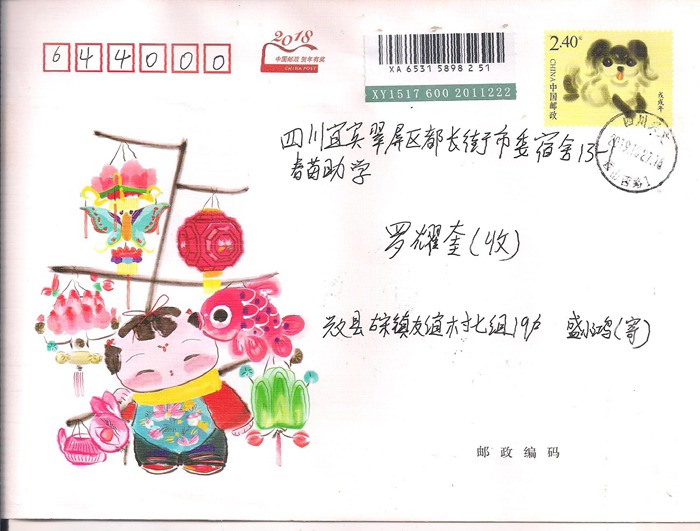 644000
2018
中国邮政 贺年有奖
CHINA POST
XA 6531 5898 2 51
XY1517 600 2011222
2.40元
CHINA 中国邮政
戊戌年
四川宜宾翠屏区都长街市委宿舍13-1
春苗助学
罗耀奎(收)
兴文县 镇友谊村七组19户 盛 鸿(寄)
邮政编码